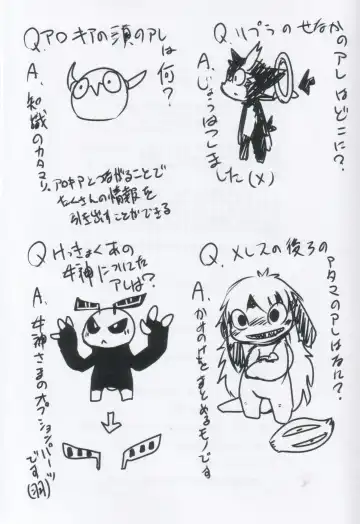 Q.アロキアの頭のアレは何？
A.知識のカタマリ。
アロキアとつながることで
たくさんの情報を
引き出すことができる
Q.リブラのせなかのアレはどこに？
A.じょうはつしました(×)
Qけっきょくあの
牛神についてた
アレは？
A.牛神さまのオプションパーツ
です(羽)
Q.メレスの後ろの
アタマのアレはなに？
A.かみのけをまとめるモノです